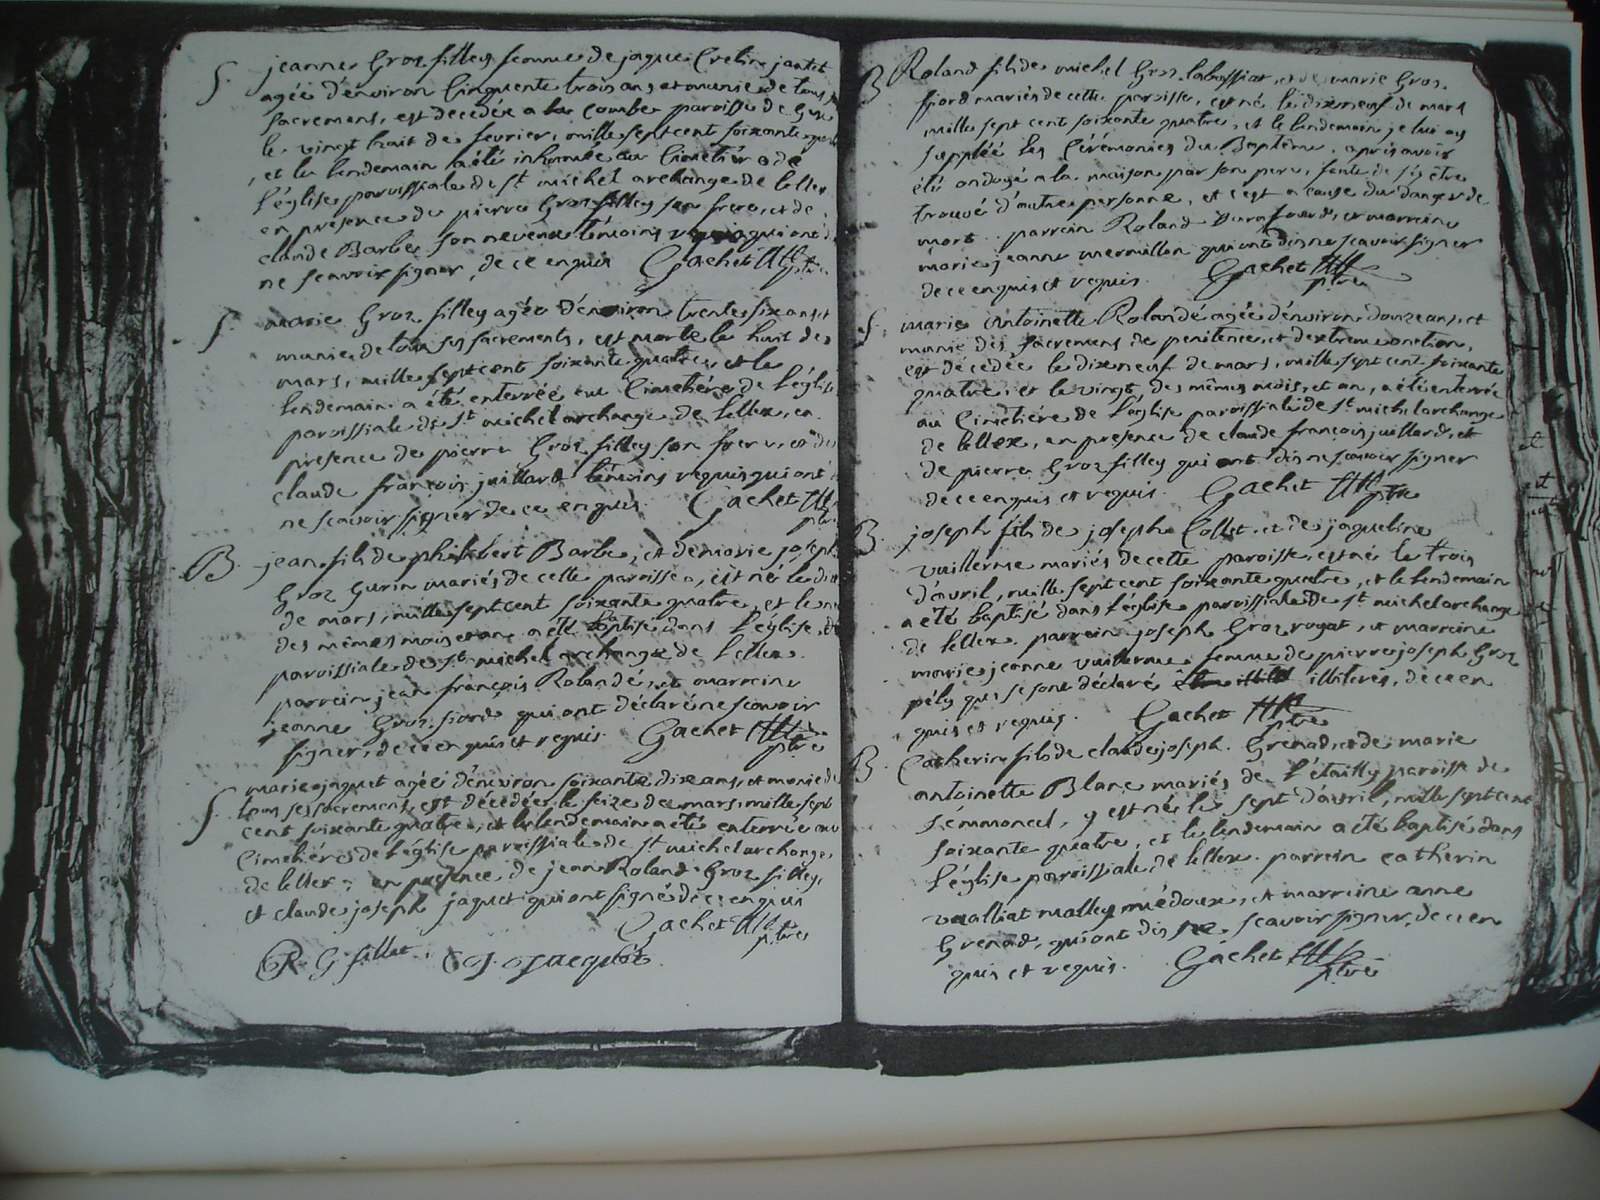 S. jeanne Groz filley femme de jaque Crestin jantet
agée d'environ Cinquante trois ans et munie de tous
sacremens, est decedée a la Combe paroisse de Gex
le vingt huit de fevrier, mille sept cent soixante
, et le lendemain a été inhumée au Cimetière de
l'église paroissiale de st michel archange de lellex
en presence de pierre Groz filley son frere, et de
claude Barbe son neveux témoins requis qui ont
ne scavoir signer, de ce enquis Gachet ptre
S. marie Groz filley agée d'environ trente six ans, et
munie de tous ses sacrements, est morte le huit de
mars, mille sept cent soixante quatre, et le
lendemain a été enterrée au Cimetiére de l'église
paroissiale de st michel archange de lellex, en
presence de pierre Groz filley son frere, et de
claude françois juillard témoins requis qui ont
ne scavoir signer de ce enquis. Gachet ptre
B. jean fils de philibert Barbe, et de marie joseph
Groz Gurin mariés de cette paroisse, est né le
de mars, mille sept cent soixante quatre, et le
des mêmes mois et an a été baptisé dans l'église
paroissiale de st michel archange de lellex.
parrein jean françois Rolande, et marreine
jeanne Groz fiord qui ont déclaré ne scavoir
signer, de ce enquis et requis. Gachet ptre
marie jaquet agée d'environ soixante dix ans, et munie de
S. tous ses sacremens, est décédée le seize de mars, mille sept
cent soixante quatre, et le lendemain a été enterrée au
Cimetiére de l'église paroissiale de st michel archange,
de lellex, en presence de jean Roland Groz filley,
et claude joseph jaquet qui ont signé de ce enquis
Gachet ptre
R. G fillet. C J. Jacquet
B Roland fils de michel Groz labossiat, et de marie Groz
fiord mariés de cette paroisse, est né le dixneuf de mars
mille sept cent soixante quatre, et le lendemain je lui ay
supplée les Cérémonies du Baptême, aprés avoir
été ondoyé a la maison par son pere, faute de s'y être
trouvé d'autre personne, et c'est a cause du danger de
mort. parrein Roland et marreine
marie jeanne vermillon qui ont dis ne scavoir signer
de ce enquis et requis. Gachet ptre
S. marie Antoinette Rolande agée d'environ douze ans, et
munie des sacremens de penitence, et d'extreme onction,
est décedée le dixneuf de mars, mille sept cent soixante
quatre, et le vingt des mêmes mois, et an, a été enterrée
au Cimetiére de l'église paroissiale de st michel archange
de lellex, en presence de claude françois juillard, et
de pierre Groz filley qui ont dis ne scavoir signer
de ce enquis et requis. Gachet ptre
B. joseph fils de joseph Collet, et de jaqueline
vuillerme mariés de cette paroisse, est né le trois
d'avril, mille sept cent soixante quatre, et le lendemain
a été baptisé dans l'église paroissiale de st michel archange
de lellex. parrein joseph Groz royat, et marreine
marie jeanne vuillerme femme de pierre joseph Groz
pély qui se sont déclaré illiterés, de ce en
quis et requis. Gachet ptre
B. Catherin fils de claude joseph Grenard, et de marie
antoinette Blanc mariés de l'étailly paroisse de
semmoncel, y est né le sept d'avril, mille sept cent
soixante quatre, et le lendemain a été baptisé dans
l'église paroissiale, de lellex. parrein catherin
mermet, et marreine anne
Grenard, qui ont dis ne scavoir signer, de ce en
quis et requis. Gachet ptre